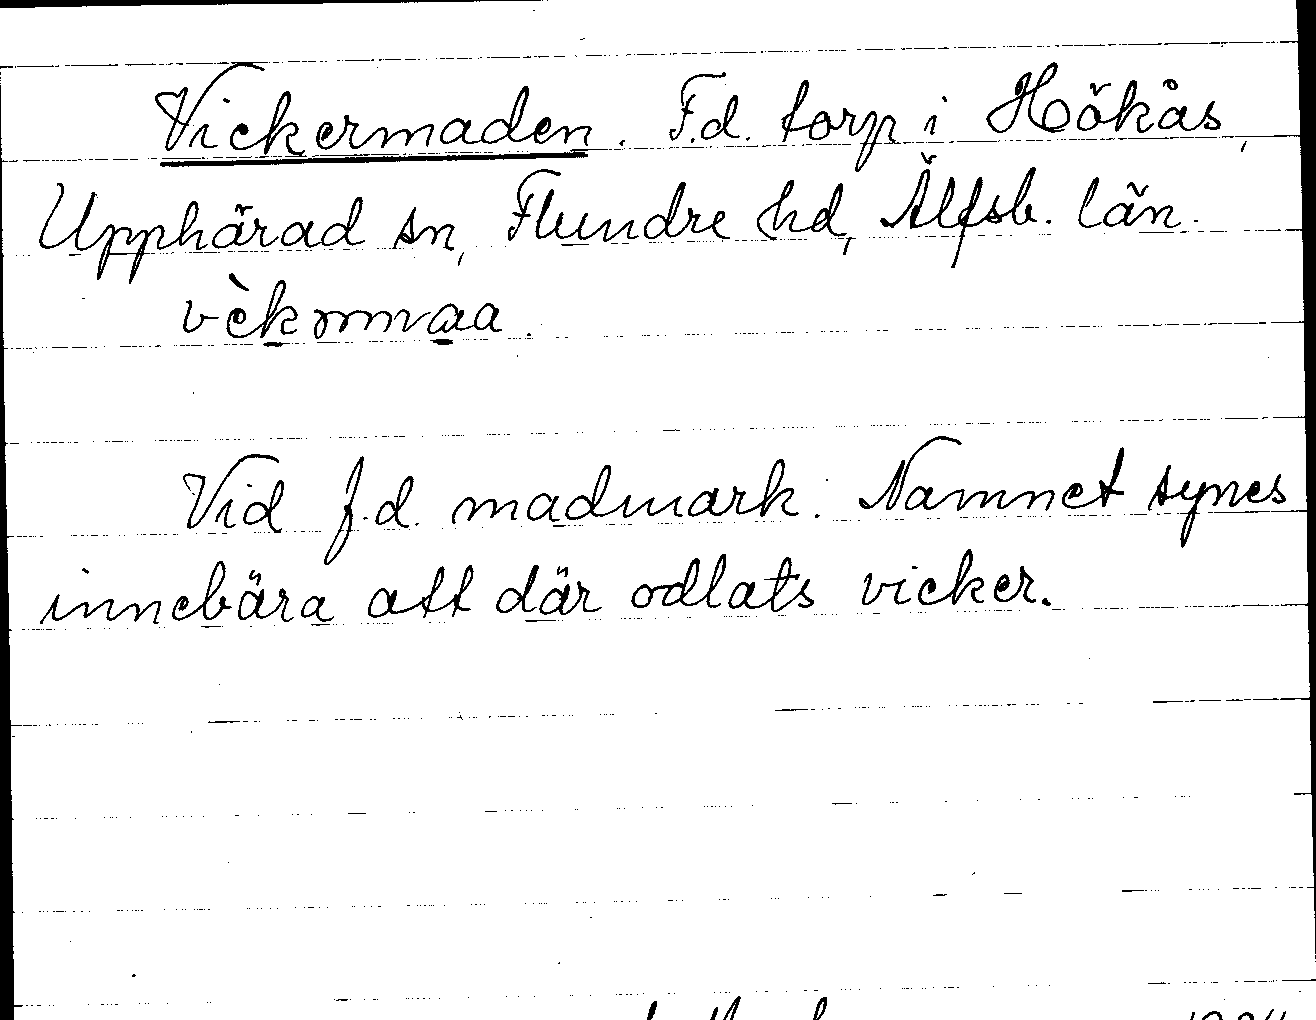 Vickermaden. F.d. torp i Hökås,
Upphärad sn, Flundre hd, Älfsb. län.
Vid f.d. madmark. Namnet synes
innebära att där odlats vicker.